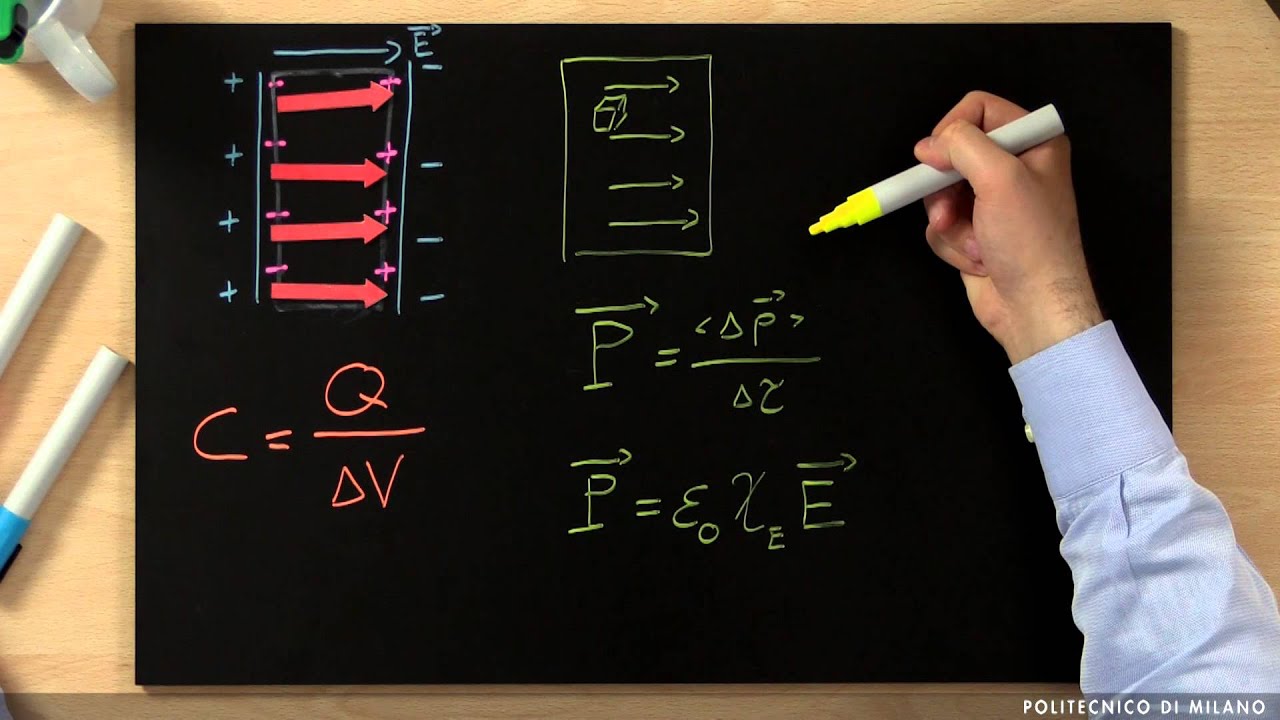 E⃗
+ - + -
+ - + -
+ - + -
+ - + -
C = Q/ΔV
P⃗ = <Δp⃗>/Δτ
P⃗ = ε₀ χ_E E⃗
POLITECNICO DI MILANO